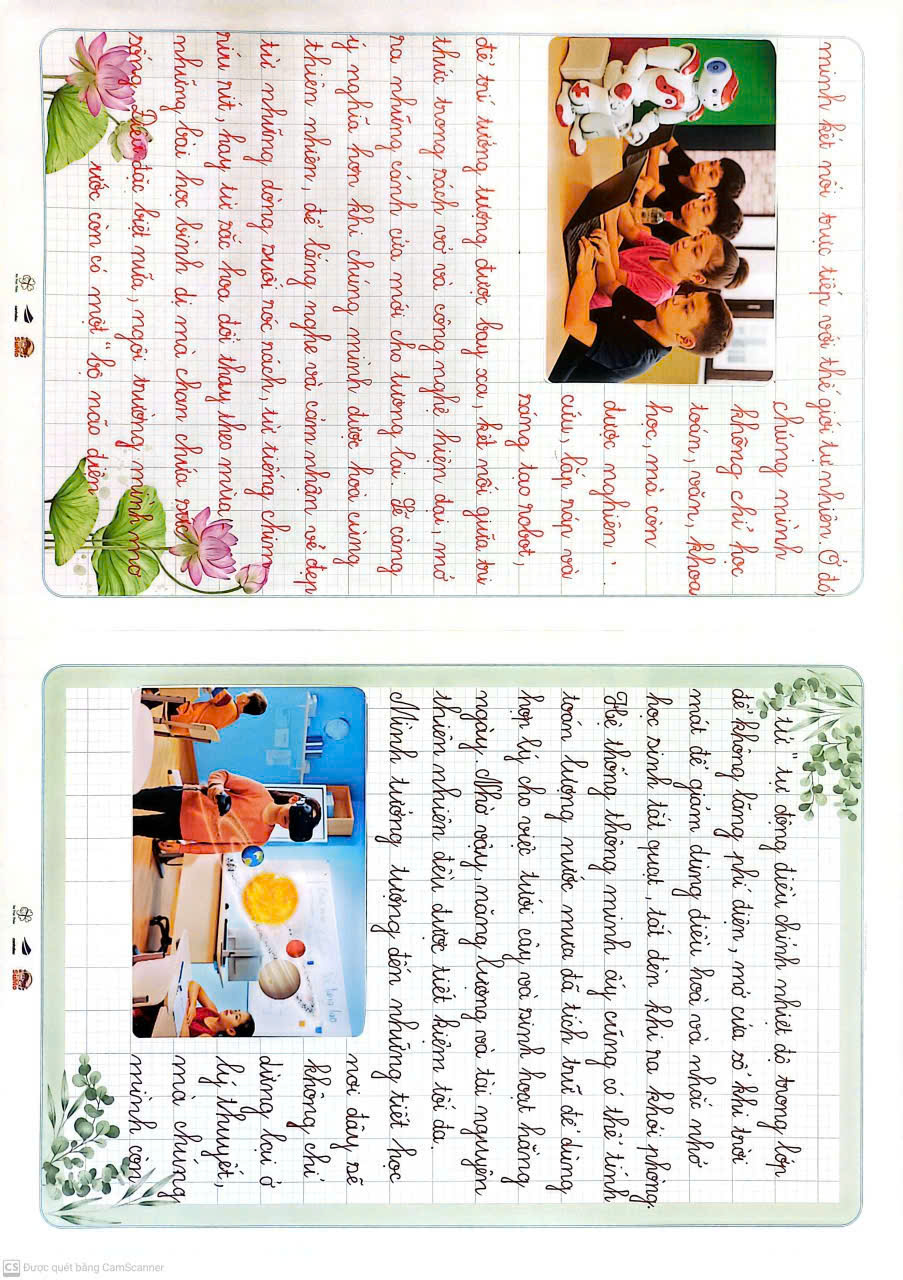 mình kết nối trực tiếp với thế giới tự nhiên. Ở đó,
chúng mình
không chỉ học
toán, văn, khoa
học, mà còn
được nghiên
cứu, lắp ráp và
sáng tạo robot,
để trí tưởng tượng được bay xa, kết nối giữa tri
thức trong sách vở và công nghệ hiện đại, mở
ra những cánh cửa mới cho tương lai. Sẽ càng
ý nghĩa hơn khi chúng mình được hoà cùng
thiên nhiên, để lắng nghe và cảm nhận vẻ đẹp
từ những dòng suối róc rách, từ tiếng chim
ríu rít, hay từ sắc hoa đổi thay theo mùa,
những bài học bình dị mà chan chứa sức
sống. Điều đặc biệt nữa, ngôi trường mình mơ
ước còn có một "bộ não điện
tử" tự động điều chỉnh nhiệt độ trong lớp
để không lãng phí điện, mở cửa sổ khi trời
mát để giảm dụng điều hoà và nhắc nhở
học sinh tắt quạt, tắt đèn khi ra khỏi phòng.
Hệ thống thông minh ấy cũng có thể tính
toán lượng nước mưa đã tích trữ để dùng
hợp lý cho việc tưới cây và sinh hoạt hằng
ngày. Nhờ vậy, năng lượng và tài nguyên
thiên nhiên đều được tiết kiệm tối đa.
Mình tưởng tượng đến những tiết học
nơi đây sẽ
không chỉ
dừng lại ở
lý thuyết,
mà chúng
mình còn
CS Được quét bằng CamScanner